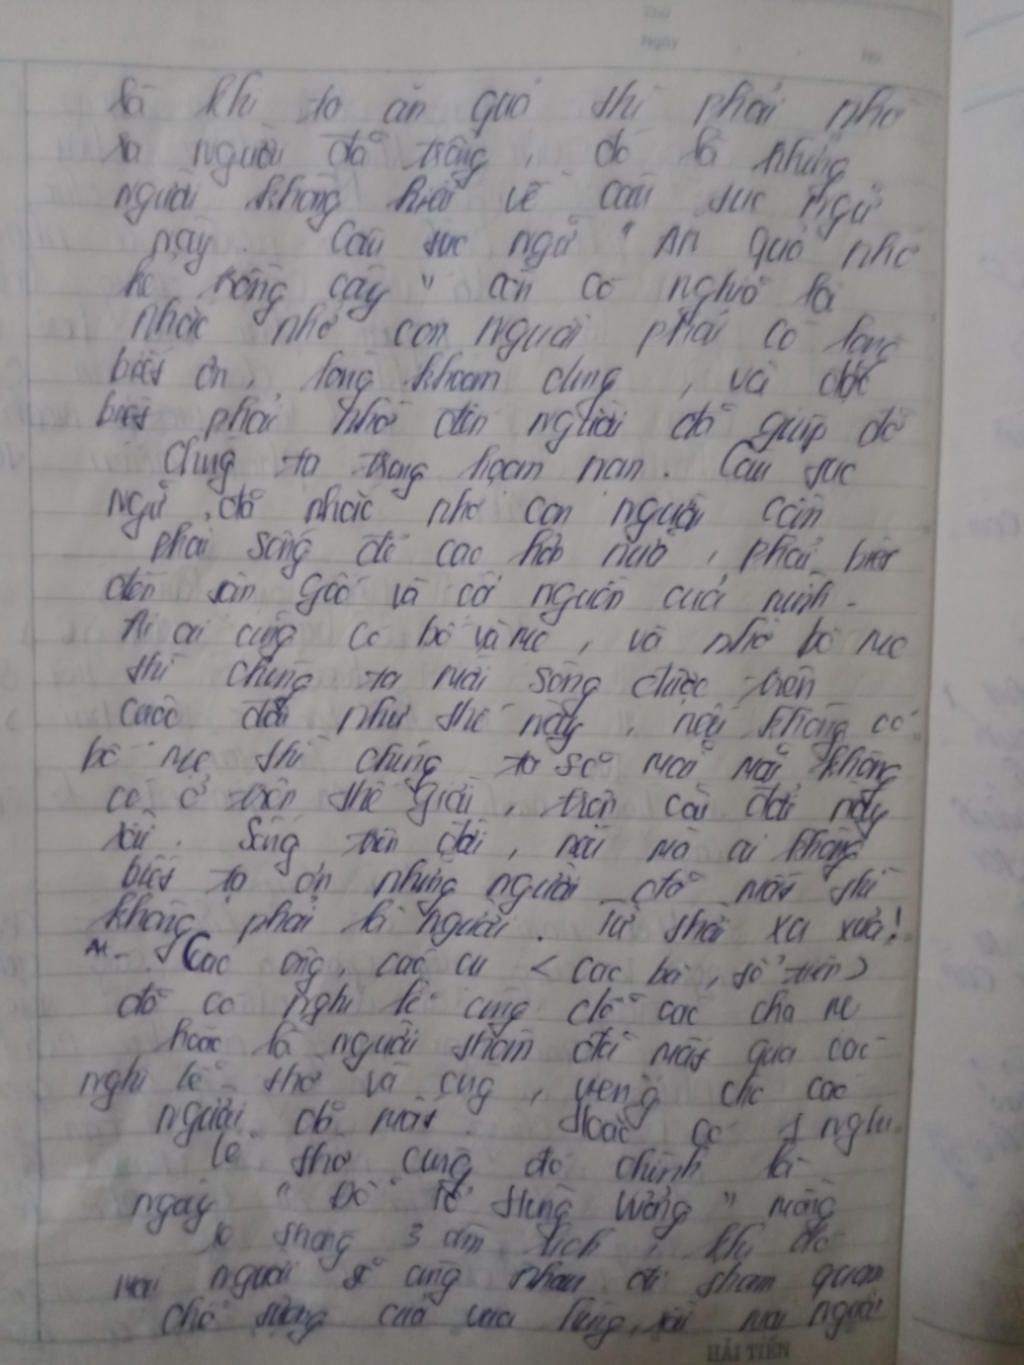 Thứ
Ngày
No.
là khi ta ăn quả thì phải nhớ
ra người đã trồng, đó là những
người không hiểu về câu tục ngữ
này. Câu tục ngữ "Ăn quả nhớ
kẻ trồng cây" còn có nghĩa là
nhắc nhở con người phải có lòng
biết ơn, lòng khoan dung, và đặc
biệt phải nhớ đến người đã giúp đỡ
chúng ta trong hoạn nạn. Câu tục
ngữ đã nhắc nhở con người cần
phải sống đề cao hơn nữa, phải biết
đến gốc và cội nguồn của mình.
ai cũng có bố và mẹ, và nhờ bố mẹ
thì chúng ta mới sống được trên
cuộc đời như thế này, nếu không có
bố mẹ thì chúng ta sẽ mãi mãi không
có ở trên thế giới, trên cõi đời này
rồi. Sống trên đời, nếu mà ai không
biết tạ ơn những người đã mất thì
không phải là người. Từ thời xa xưa!
Các ông, các cụ < các bà, tổ tiên >
đã có nghi lễ cúng cho các cha mẹ
hoặc là người thân đã mất qua các
nghi lễ thờ và cúng, viếng cho các
người đã mất. Hoặc có 1 nghi
lễ thờ cúng đó chính là
ngày "Đỗ tổ Hùng Vương" mồng
10 tháng 3 âm lịch, khi đó
mọi người sẽ cùng nhau đi tham quan
chỗ tượng của vua Hùng, rồi mọi người
HẢI TIẾN